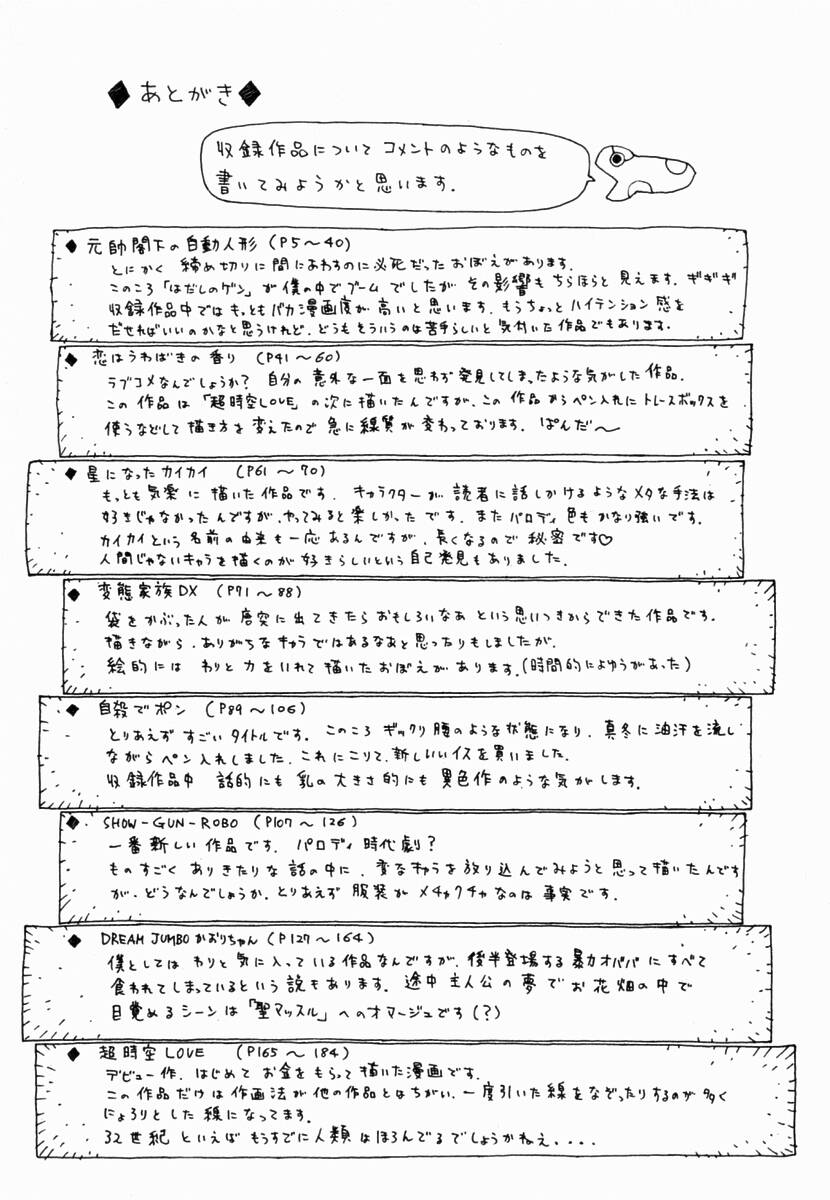 ◆あとがき◆
収録作品について コメントのようなものを
書いてみようかと思います.
◆ 元帥閣下の自動人形 (P5～40)
とにかく 締め切りに間にあわすのに必死だった おぼえがあります.
このころ 「はだしのゲン」が 僕の中でブームでしたが その影響もちらほらと見えます. ギギギ
収録作品中では もっともバカ漫画度が高いと思います. もうちょっとハイテンション感を
だせればいいのかなと思うけれど. どうもそういうのは苦手らしいと気付いた作品でもあります.
◆ 恋はうわばきの香り (P41～60)
ラブコメなんでしょうか? 自分の意外な一面を思わず発見してしまったような気がした作品.
この作品は「超時空LOVE」の次に描いたんですが、この作品からペン入れにトレースボックスを
使うなどして描き方を変えたので急に線質が変わっております. ぱんだ～
◆ 星になったカイカイ (P61～70)
もっとも気楽に描いた作品です. キャラクターが読者に話しかけるようなメタな手法は
好きじゃなかったんですが、やってみると楽しかったです. またパロディ色もかなり強いです.
カイカイという名前の由来も一応あるんですが、長くなるので秘密です♡
人間じゃないキャラを描くのが好きらしいという自己発見もありました.
◆ 変態家族DX (P71～88)
袋をかぶった人が唐突に出てきたらおもしろいなあという思いつきからできた作品です.
描きながら、ありがちなキャラではあるなあと思ったりもしましたが.
絵的には わりと力をいれて描いたおぼえがあります.(時間的によゆうがあった)
◆ 自殺でポン (P89～106)
とりあえずすごいタイトルです. このころギックリ腰のような状態になり、真冬に油汗を流し
ながらペン入れしました. これにこりて、新しいイスを買いました.
収録作品中 話的にも乳の大きさ的にも異色作のような気がします.
◆ SHOW-GUN-ROBO (P107～126)
一番新しい作品です. パロディ時代劇?
ものすごくありきたりな話の中に、変なキャラを放り込んでみようと思って描いたんです
が、どうなんでしょうか. とりあえず服装がメチャクチャなのは事実です.
◆ DREAM JUMBOかおりちゃん (P127～164)
僕としてはわりと気に入っている作品なんですが、後半登場する暴力オババにすべて
食われてしまっているという説もあります. 途中主人公の夢でお花畑の中で
目覚めるシーンは「聖マッスル」へのオマージュです(?)
◆ 超時空LOVE (P165～184)
デビュー作. はじめてお金をもらって描いた漫画です.
この作品だけは作画法が他の作品とはちがい、一度引いた線をなぞったりするのが多く
にょろりとした線になってます.
32世紀といえばもうすでに人類はほろんでるでしょうかねえ....